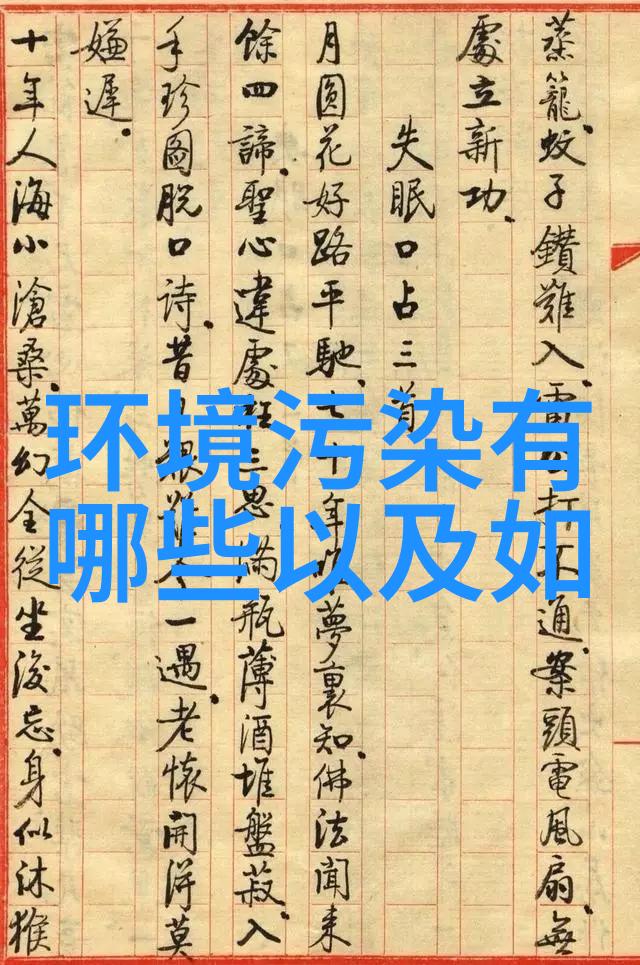 蒸籠蚊子鑽難入雷公打不通案頭電風扇無
處立新功
失眠口占三首
月圓花好路平馳七十年 夢裏知佛法聞來
餘四諦聖心違處 三思滿瓶薄酒堆盤菽入
手珍圖脫口詩昔 恨 一遇老懷開得莫
嫌遲
十年人海小滄桑萬幻全從坐後忘身似沐猴
环境污染有
哪些以及如